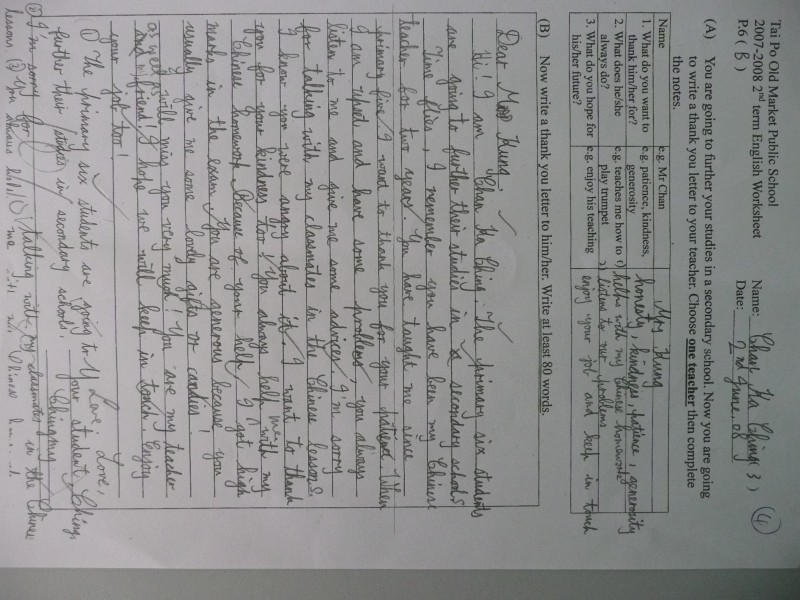 Tai Po Old Market Public School
2007-2008 2nd term English Worksheet Name: Chan Ka Ching ( 3 ) (4)
P.6 ( B ) Date: 2nd June, 08
(A) You are going to further your studies in a secondary school. Now you are going
to write a thank you letter to your teacher. Choose one teacher then complete
the notes.
Name e.g. Mr Chan Mrs Kung
1. What do you want to thank him/her for? e.g. patience, kindness, generosity honesty, kindness, patience, generosity
2. What does he/she always do? e.g. teaches me how to play trumpet 1) helps with my Chinese homework 2) listens to my problems
3. What do you hope for his/her future? e.g. enjoy his teaching enjoy your job and keep in touch
(B) Now write a thank you letter to him/her. Write at least 80 words.
Dear Mrs Kung
Hi! I am Chan Ka Ching. The primary six students
are going to further their studies in a secondary schools.
Time flies, I remember you have been my Chinese
teacher for two years. You have taught me since
primary five. I want to thank you for your patience. When
I am upset and have some problems, you always
listen to me and give me some advices. I'm sorry
for talking with my classmates in the Chinese lessons.
I know you were angry about it. I want to thank
you for your kindness too! You always help me with my
Chinese homework. Because of your help, I got high
marks in the exam. You are generous because you
usually give me some lovely gifts or candies!
I will miss you very much! You are my teacher
as well as friend. I hope we will keep in touch. Enjoy
your job too!
Love, Love,
your student, Ching
Chingmy
① The primary six students are going to
further their studies in secondary schools.
② I'm sorry for talking with my classmates in the Chinese
lessons. ③ You always help me with my Chinese